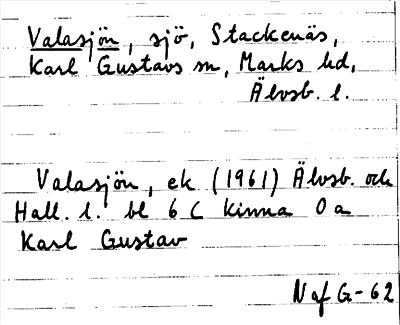 Valasjön, sjö, Stackenäs,
Karl Gustavs sn, Marks hd,
Älvsb. l.
Valasjön, ek (1961) Älvsb. och
Hall. l. bl 6 C Kinna Oa
Karl Gustav
Naf G-62